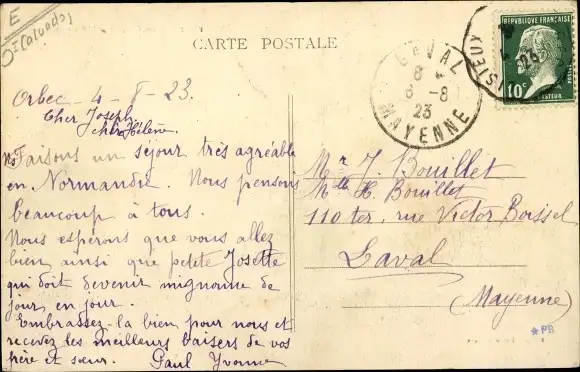 E
(Calvados)
CARTE POSTALE
RÉPUBLIQUE FRANÇAISE
POSTES
10c
PASTEUR
LISIEUX
LAVAL
8
6 -8
23
MAYENNE
Orbec - 4 - 8 - 23.
Cher Joseph,
chère Hélène.
Ns Faisons un séjour très agréable
en Normandie. Nous pensons
beaucoup à tous.
Nous espérons que vous allez
bien ainsi que petite Josette
qui doit devenir mignonne de
jour en jour.
Embrassez-la bien pour nous et
recevez les meilleurs baisers de vos
frère et sœur. Paul Yvonne
Mr J. Bouillet
Mlle H. Bouillet
110 ter, rue Victor Boissel
Laval
(Mayenne)
*PB